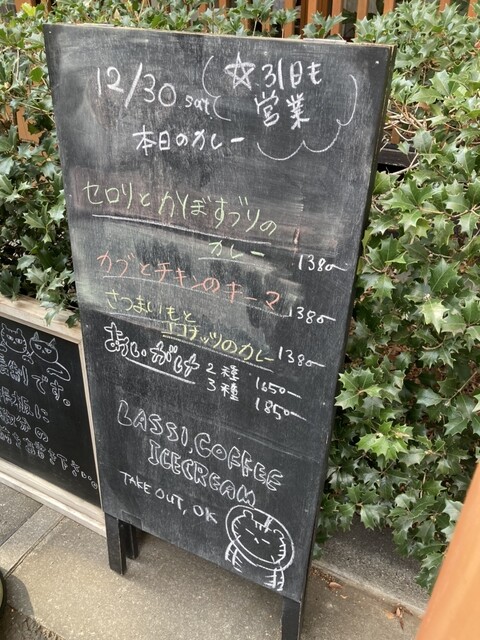 12/30 sat.
☆31日も
営業
本日のカレー
セロリとかぼすづりの
カレー 1380-
カブとチキンのキーマ 1380-
さつまいもと
ココナッツのカレー 1380-
あいがけ 2種 1650-
3種 1850-
LASSI, COFFEE
ICECREAM
TAKE OUT, OK
制です。
に